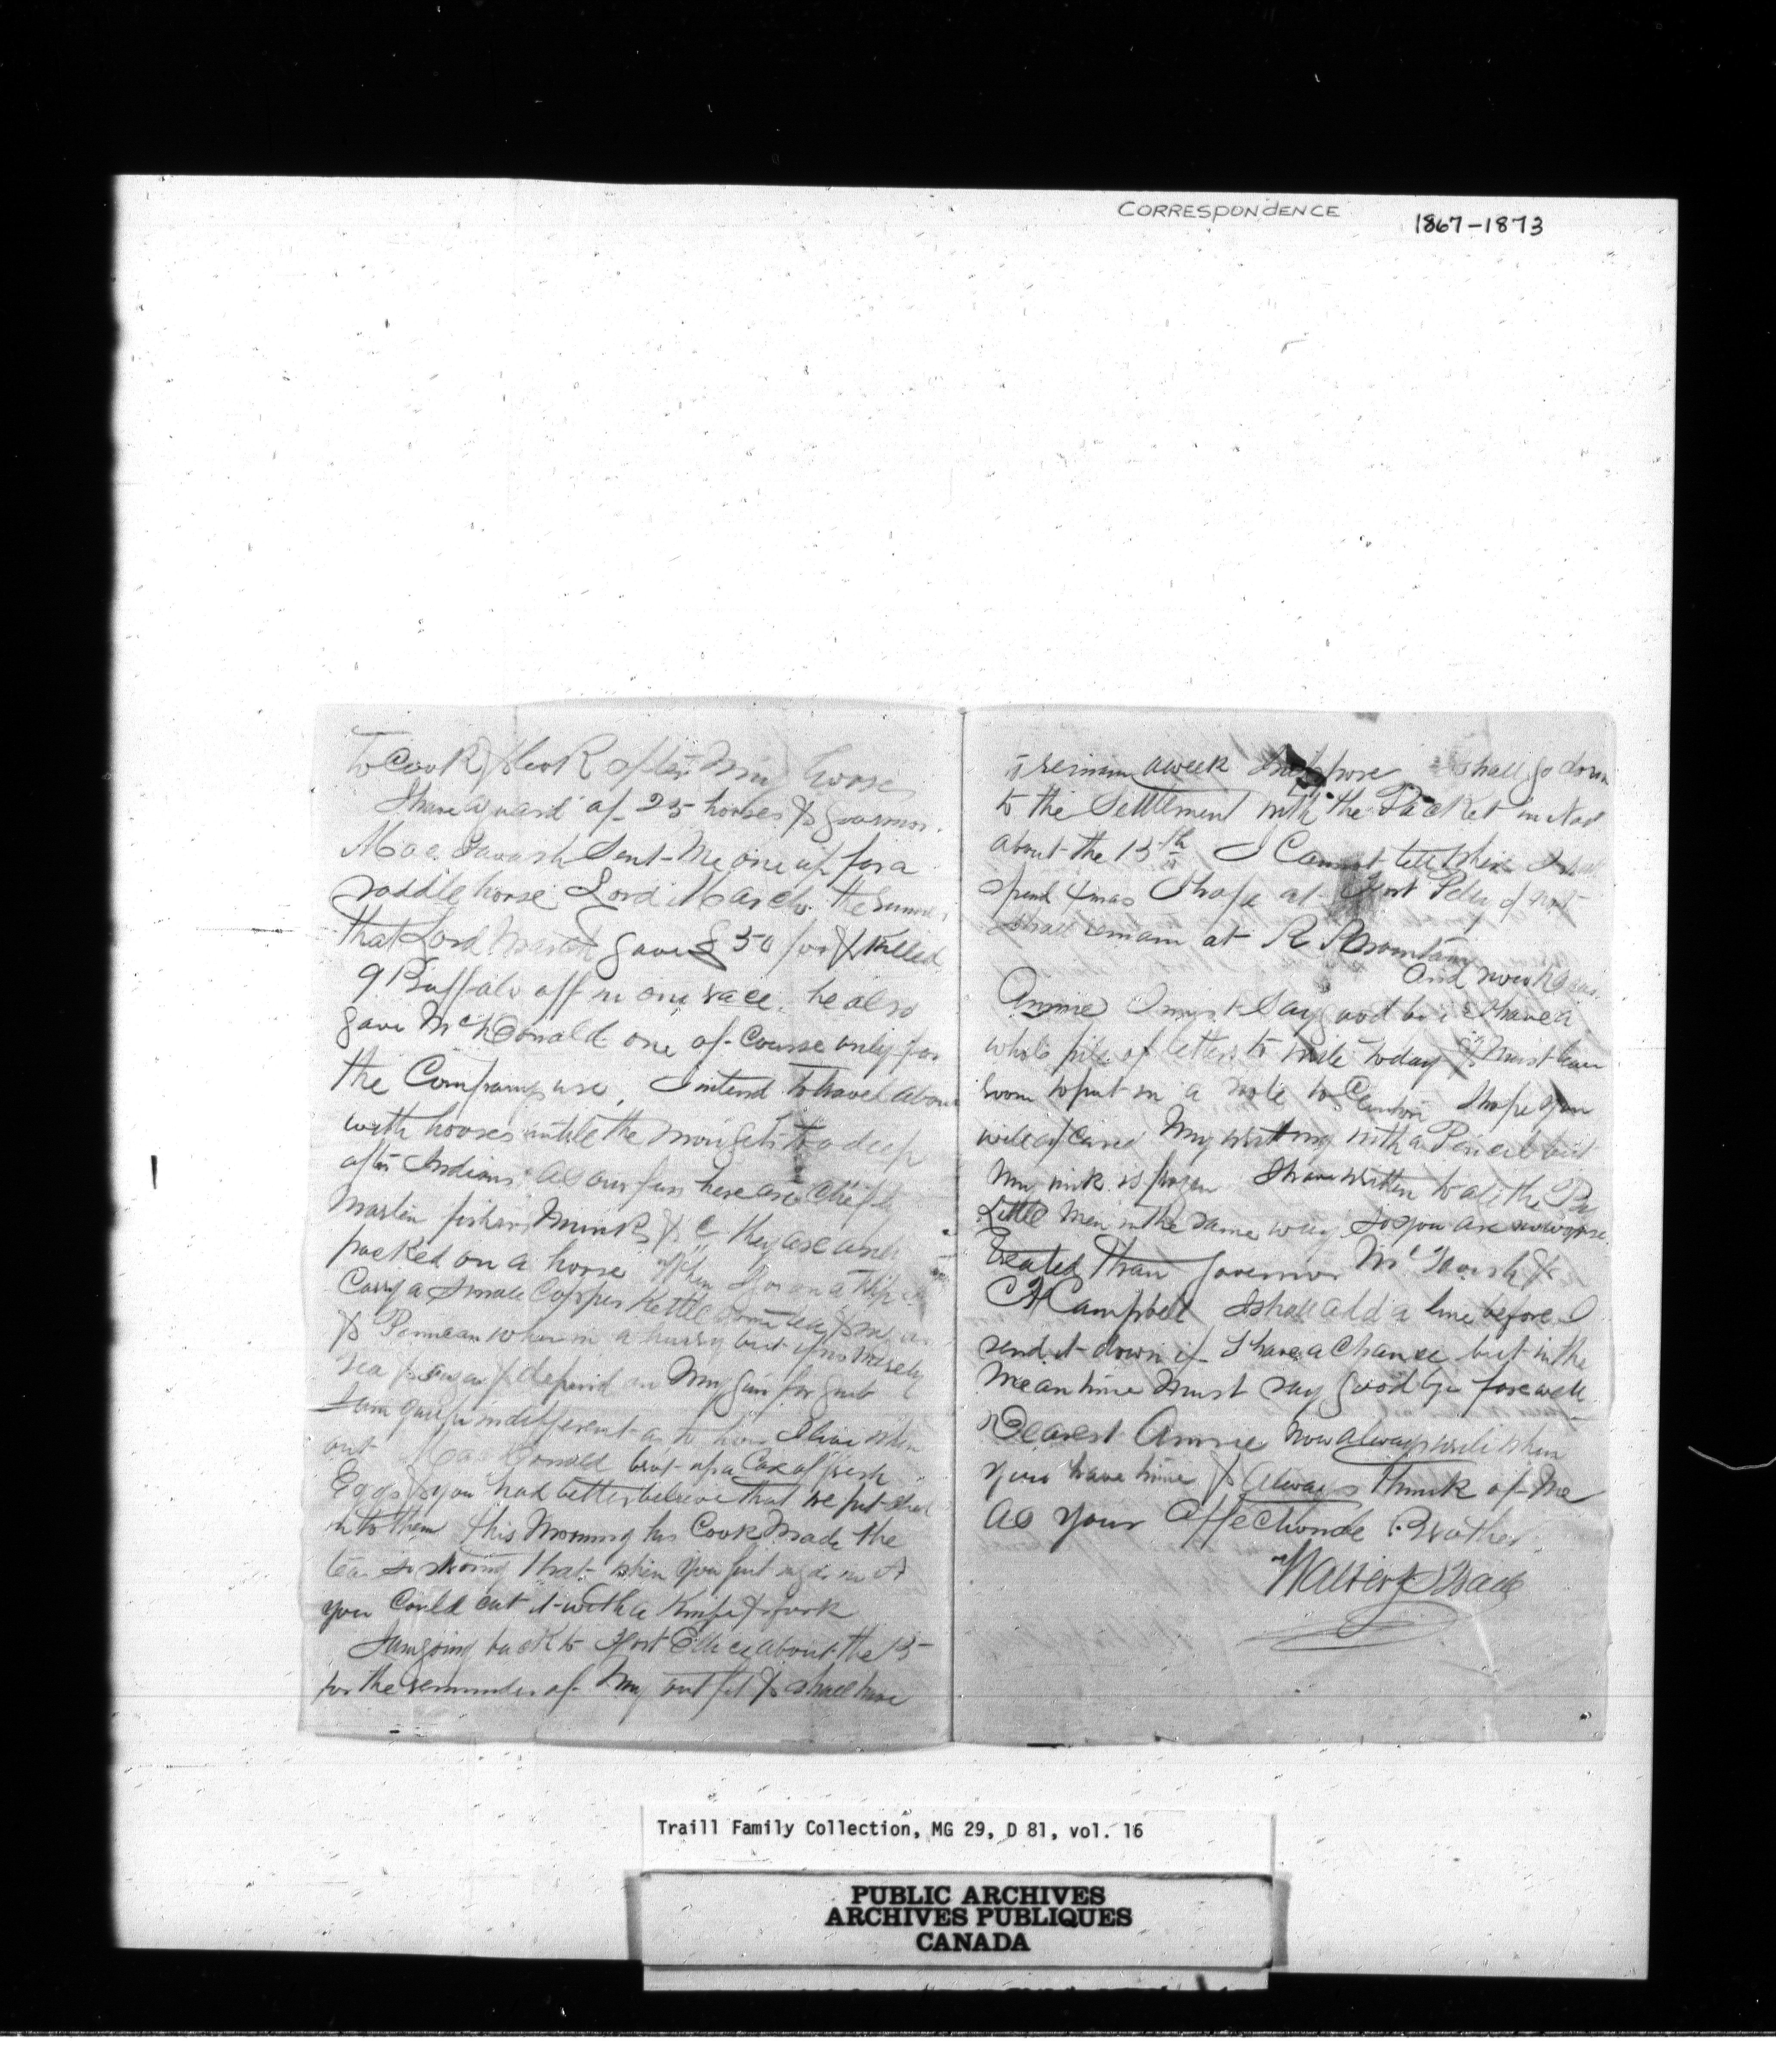 CORRESPONDENCE 1867-1873
to Cook & look after my horses
I have a guard of 25 horses & Governor
Mac Tavish sent me one up for a
saddle horse Lord March the
that Lord March gave £50 for & killed
9 Buffalo off in one race. he also
gave McDonald one of course only for
the Companys use, I intend to travel about
with horses untile the snow gets too deep
after Indians. As our furs here are Chiefly
Martin fishers Minks & c they are easily
packed on a horse When I go on a trip I
Carry a small Copper Kettle some tea & sugar
& Pemican when in a hurry but if not merely
tea & sugar & depend on my gun for grub
I am quite indifferent as to how I live when
out MacDonald brot up a Box of fresh
Eggs & you had better believe that we put
into them this Morning his Cook made the
tea so strong that when you put sugar in it
you Could cut it with a Knife & fork
I am going back to Fort Ellice about the 15
for the remainder of my outfit & shall have
to remain a week I suppose I shall go down
to the Settlement with the Packet
about the 13th I Cannot tell where I shall
spend Xmas I hope at Fort Pelly if not
I shall remain at R Mountain
And now dear
Annie I must say good bye I have a
whole pile of letters to write today & must leave
room to put in a note to I hope you
will excuse my writing with a Pencil but
my ink is frozen I have written to all the
Little men in the same way so you are no worse
treated than Governor McTavish &
Campbell I shall add a line before I
send it down if I have a Chance but in the
meantime must say good bye farewell
Dearest Annie Now always write when
you have time & always think of me
As your Affectionate Brother
Walter Traill
Traill Family Collection, MG 29, D 81, vol. 16
PUBLIC ARCHIVES
ARCHIVES PUBLIQUES
CANADA